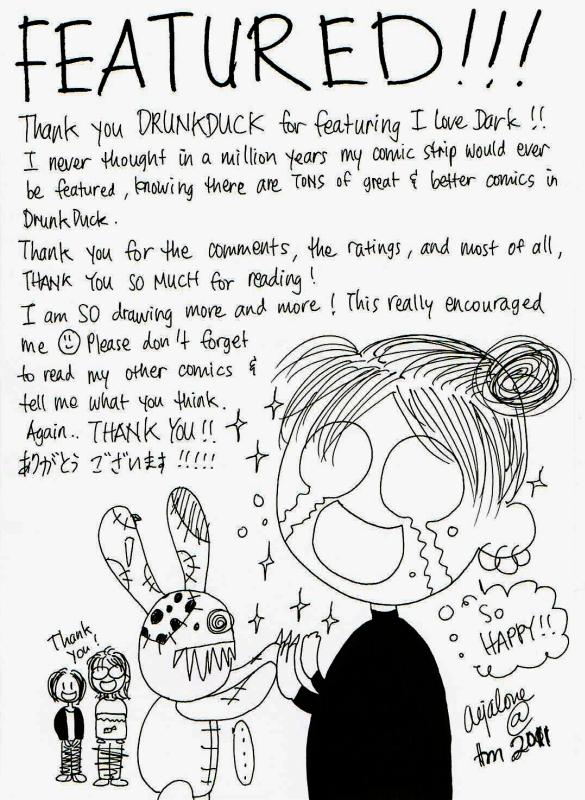 FEATURED!!!
Thank you DRUNKDUCK for featuring I Love Dark !!
I never thought in a million years my comic strip would ever
be featured, knowing there are TONS of great & better comics in
DrunkDuck.
Thank you for the comments, the ratings, and most of all,
THANK YOU SO MUCH for reading!
I am SO drawing more and more! This really encouraged
me ☺ Please don't forget
to read my other comics &
tell me what you think.
Again.. THANK YOU!!
ありがとう ございます !!!!!
Thank
you!
So
HAPPY!!
@
2011